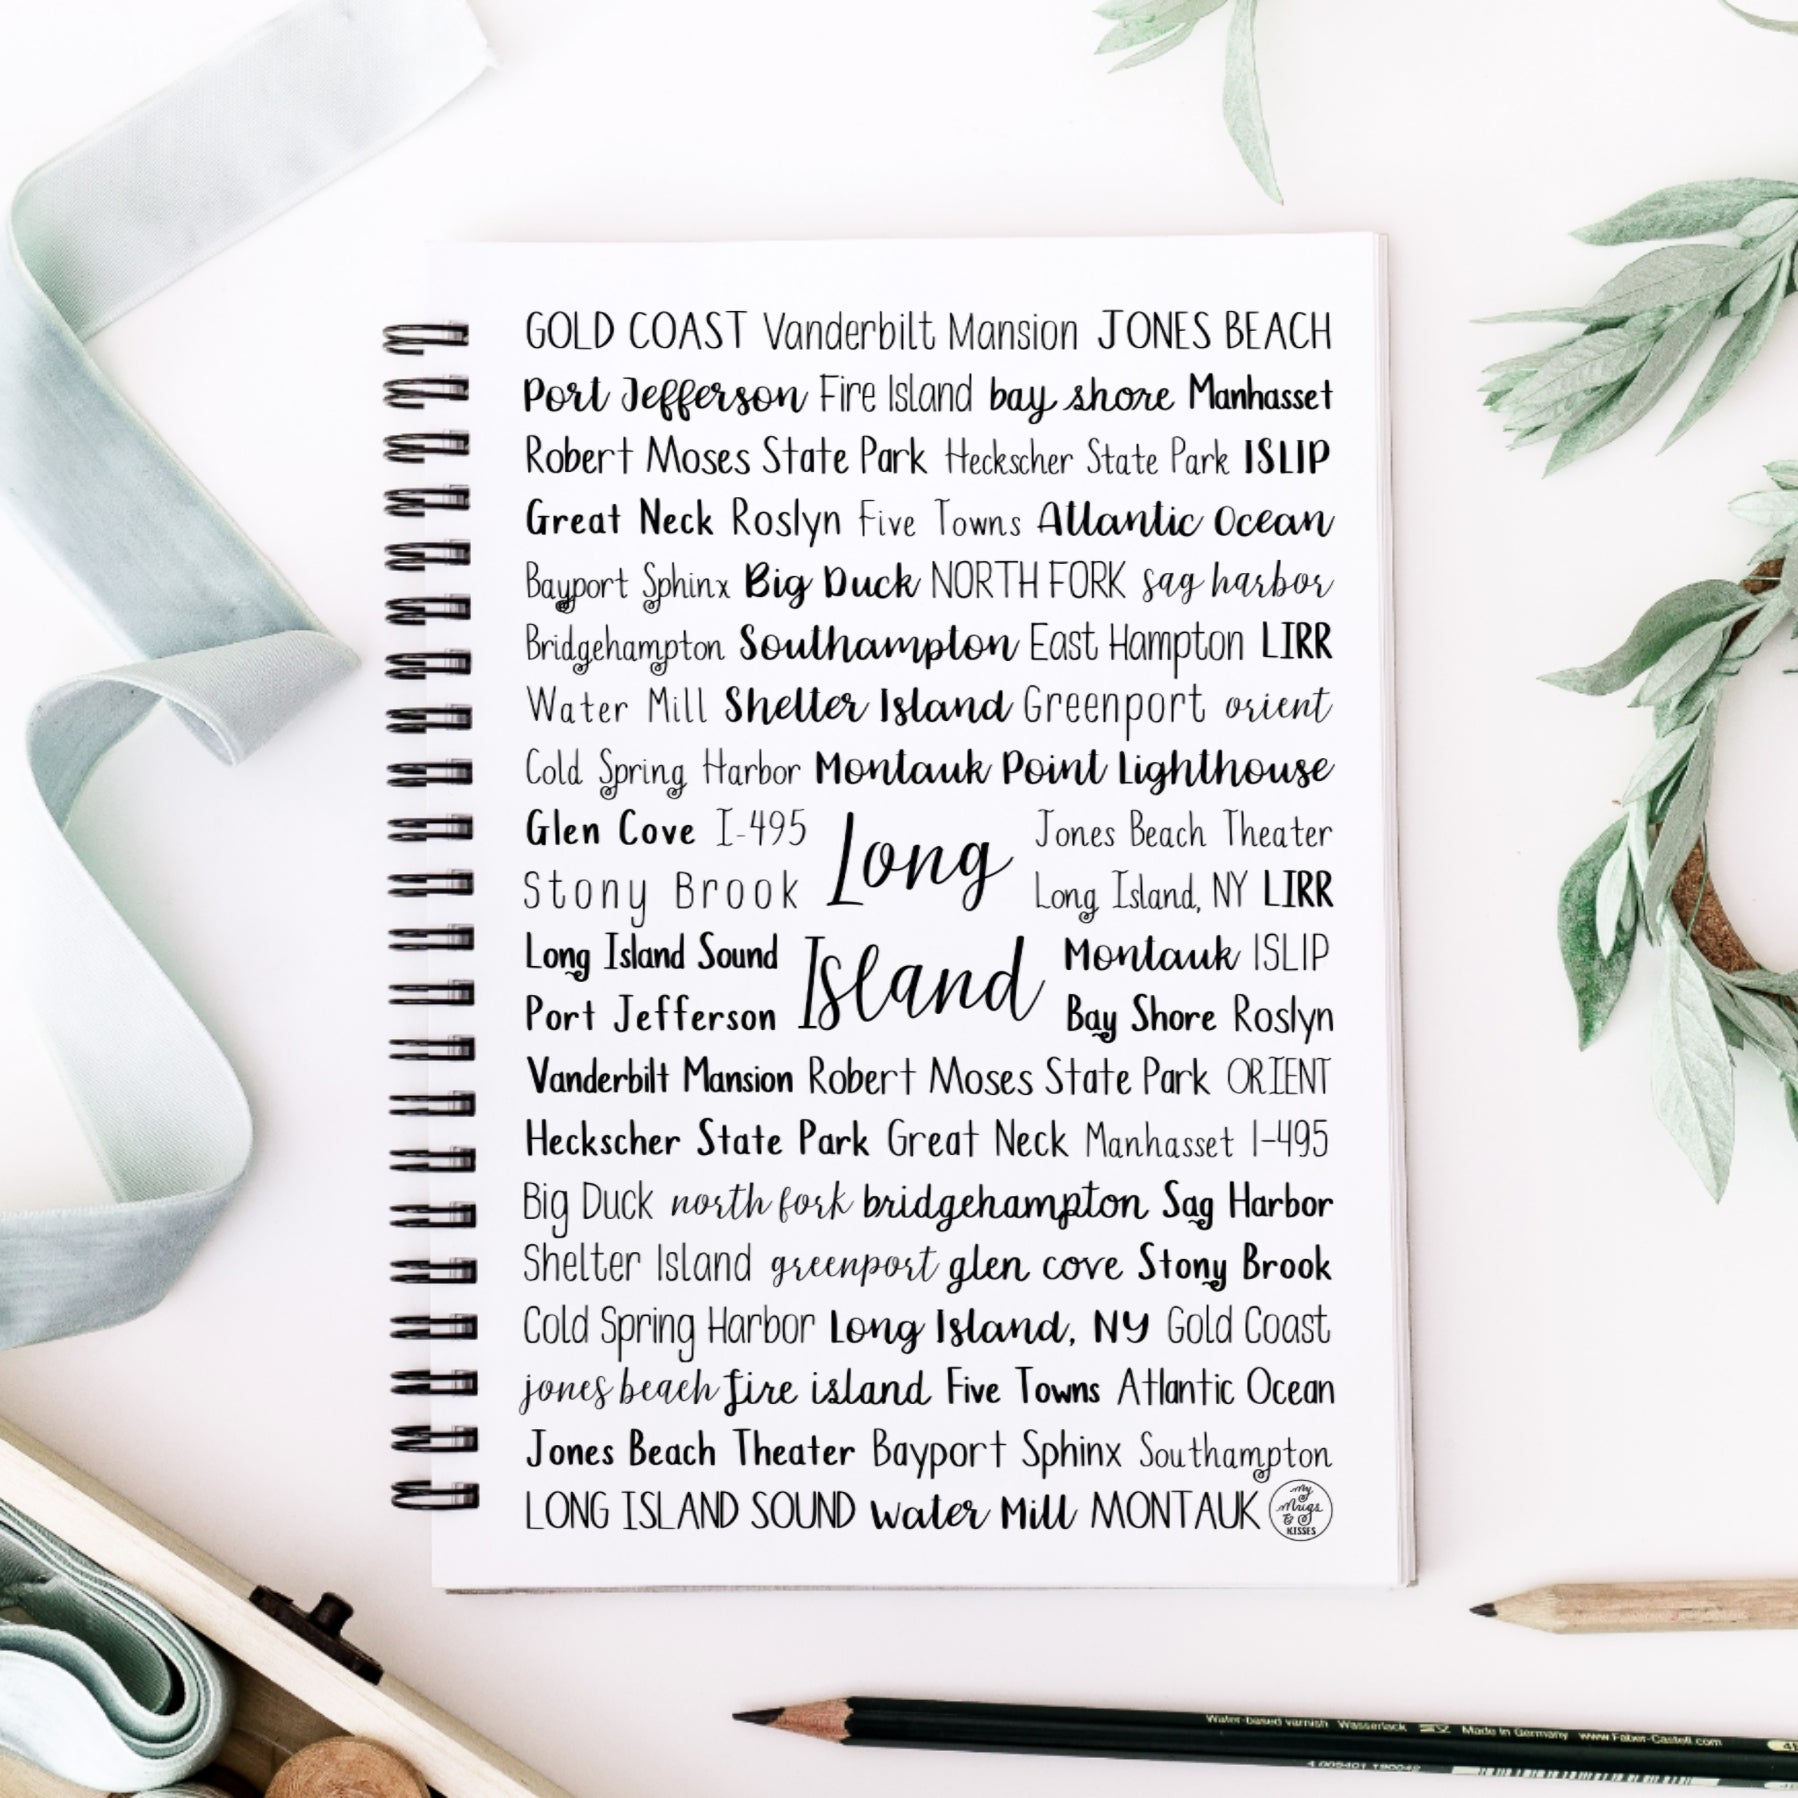 GOLD COAST Vanderbilt Mansion JONES BEACH
Port Jefferson Fire Island bay shore Manhasset
Robert Moses State Park Heckscher State Park ISLIP
Great Neck Roslyn Five Towns Atlantic Ocean
Bayport Sphinx Big Duck NORTH FORK sag harbor
Bridgehampton Southampton East Hampton LIRR
Water Mill Shelter Island Greenport orient
Cold Spring Harbor Montauk Point Lighthouse
Glen Cove I-495 Jones Beach Theater
Long
Stony Brook Long Island, NY LIRR
Long Island Sound Montauk ISLIP
Island
Port Jefferson Bay Shore Roslyn
Vanderbilt Mansion Robert Moses State Park ORIENT
Heckscher State Park Great Neck Manhasset I-495
Big Duck north fork bridgehampton Sag Harbor
Shelter Island greenport glen cove Stony Brook
Cold Spring Harbor Long Island, NY Gold Coast
jones beach fire island Five Towns Atlantic Ocean
Jones Beach Theater Bayport Sphinx Southampton
LONG ISLAND SOUND Water Mill MONTAUK
My
Mugs
&
KISSES
Water-based varnish Wasserlack Made in Germany www.Faber-Castell.com
4 005401 190042